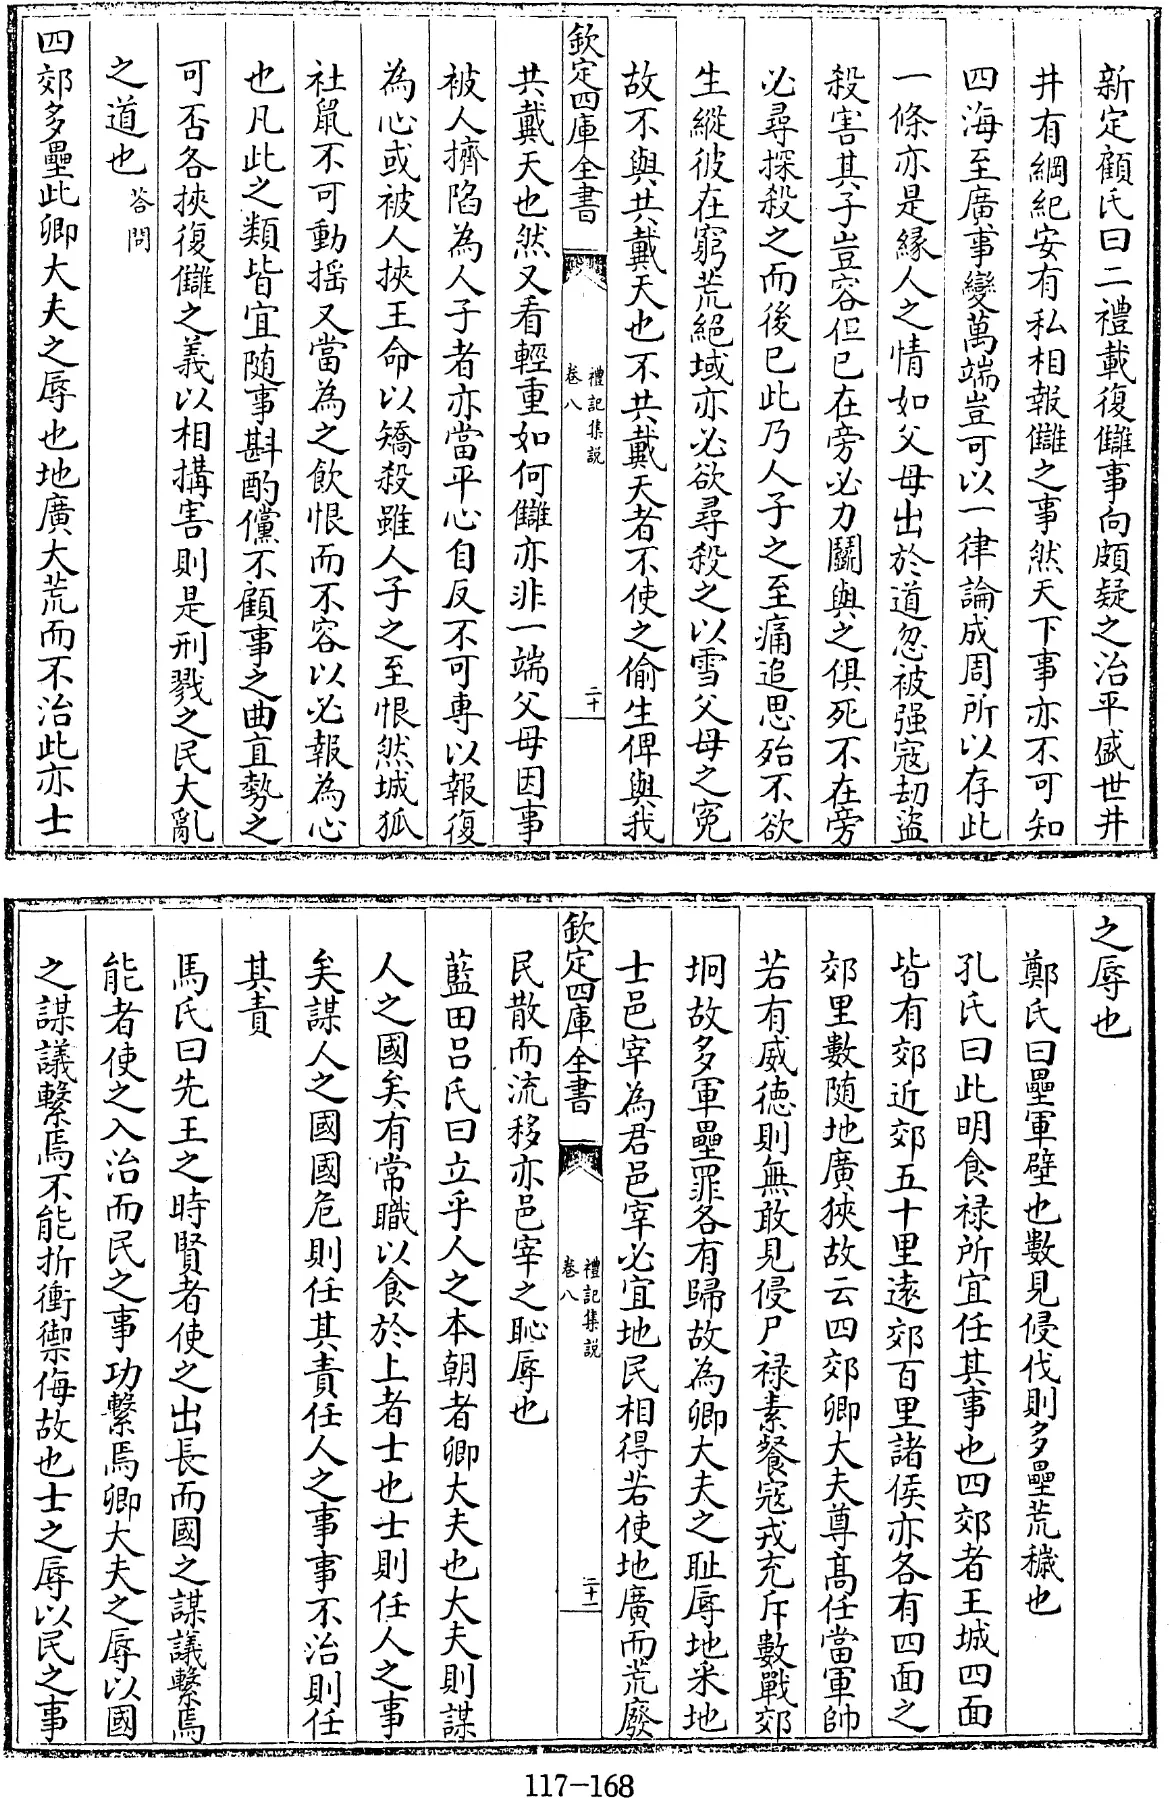 新定顧氏曰二禮載復讎事向頗疑之治平盛世井
井有綱紀安有私相報讎之事然天下事亦不可知
四海至廣事變萬端豈可以一律論成周所以存此
一條亦是緣人之情如父母出於道忽被强寇刼盜
殺害其子豈容但已在旁必力鬬與之俱死不在旁
必尋探殺之而後已此乃人子之至痛追思殆不欲
生縱彼在窮荒絶域亦必欲尋殺之以雪父母之寃
故不與共戴天也不共戴天者不使之偷生俾與我
欽定四庫全書
禮記集說
卷八
二十
共戴天也然又看輕重如何讎亦非一端父母因事
被人擠陷為人子者亦當平心自反不可專以報復
為心或被人挾王命以矯殺雖人子之至恨然城狐
社鼠不可動揺又當為之飲恨而不容以必報為心
也凡此之類皆宜随事斟酌儻不顧事之曲直勢之
可否各挾復讎之義以相搆害則是刑戮之民大亂
之道也答問
四郊多壘此卿大夫之辱也地廣大荒而不治此亦士
之辱也
鄭氏曰壘軍壁也數見侵伐則多壘荒穢也
孔氏曰此明食祿所宜任其事也四郊者王城四面
皆有郊近郊五十里逺郊百里諸侯亦各有四面之
郊里數随地廣狹故云四郊卿大夫尊髙任當軍帥
若有威德則無敢見侵尸祿素餐寇戎充斥數戰郊
坰故多軍壘罪各有歸故為卿大夫之耻辱地采地
士邑宰為君邑宰必宜地民相得若使地廣而荒廢
欽定四庫全書
禮記集說
卷八
二十一
民散而流移亦邑宰之恥辱也
藍田呂氏曰立乎人之本朝者卿大夫也大夫則謀
人之國矣有常職以食於上者士也士則任人之事
矣謀人之國國危則任其責任人之事事不治則任
其責
馬氏曰先王之時賢者使之出長而國之謀議繫焉
能者使之入治而民之事功繫焉卿大夫之辱以國
之謀議繫焉不能折衝禦侮故也士之辱以民之事
117-168